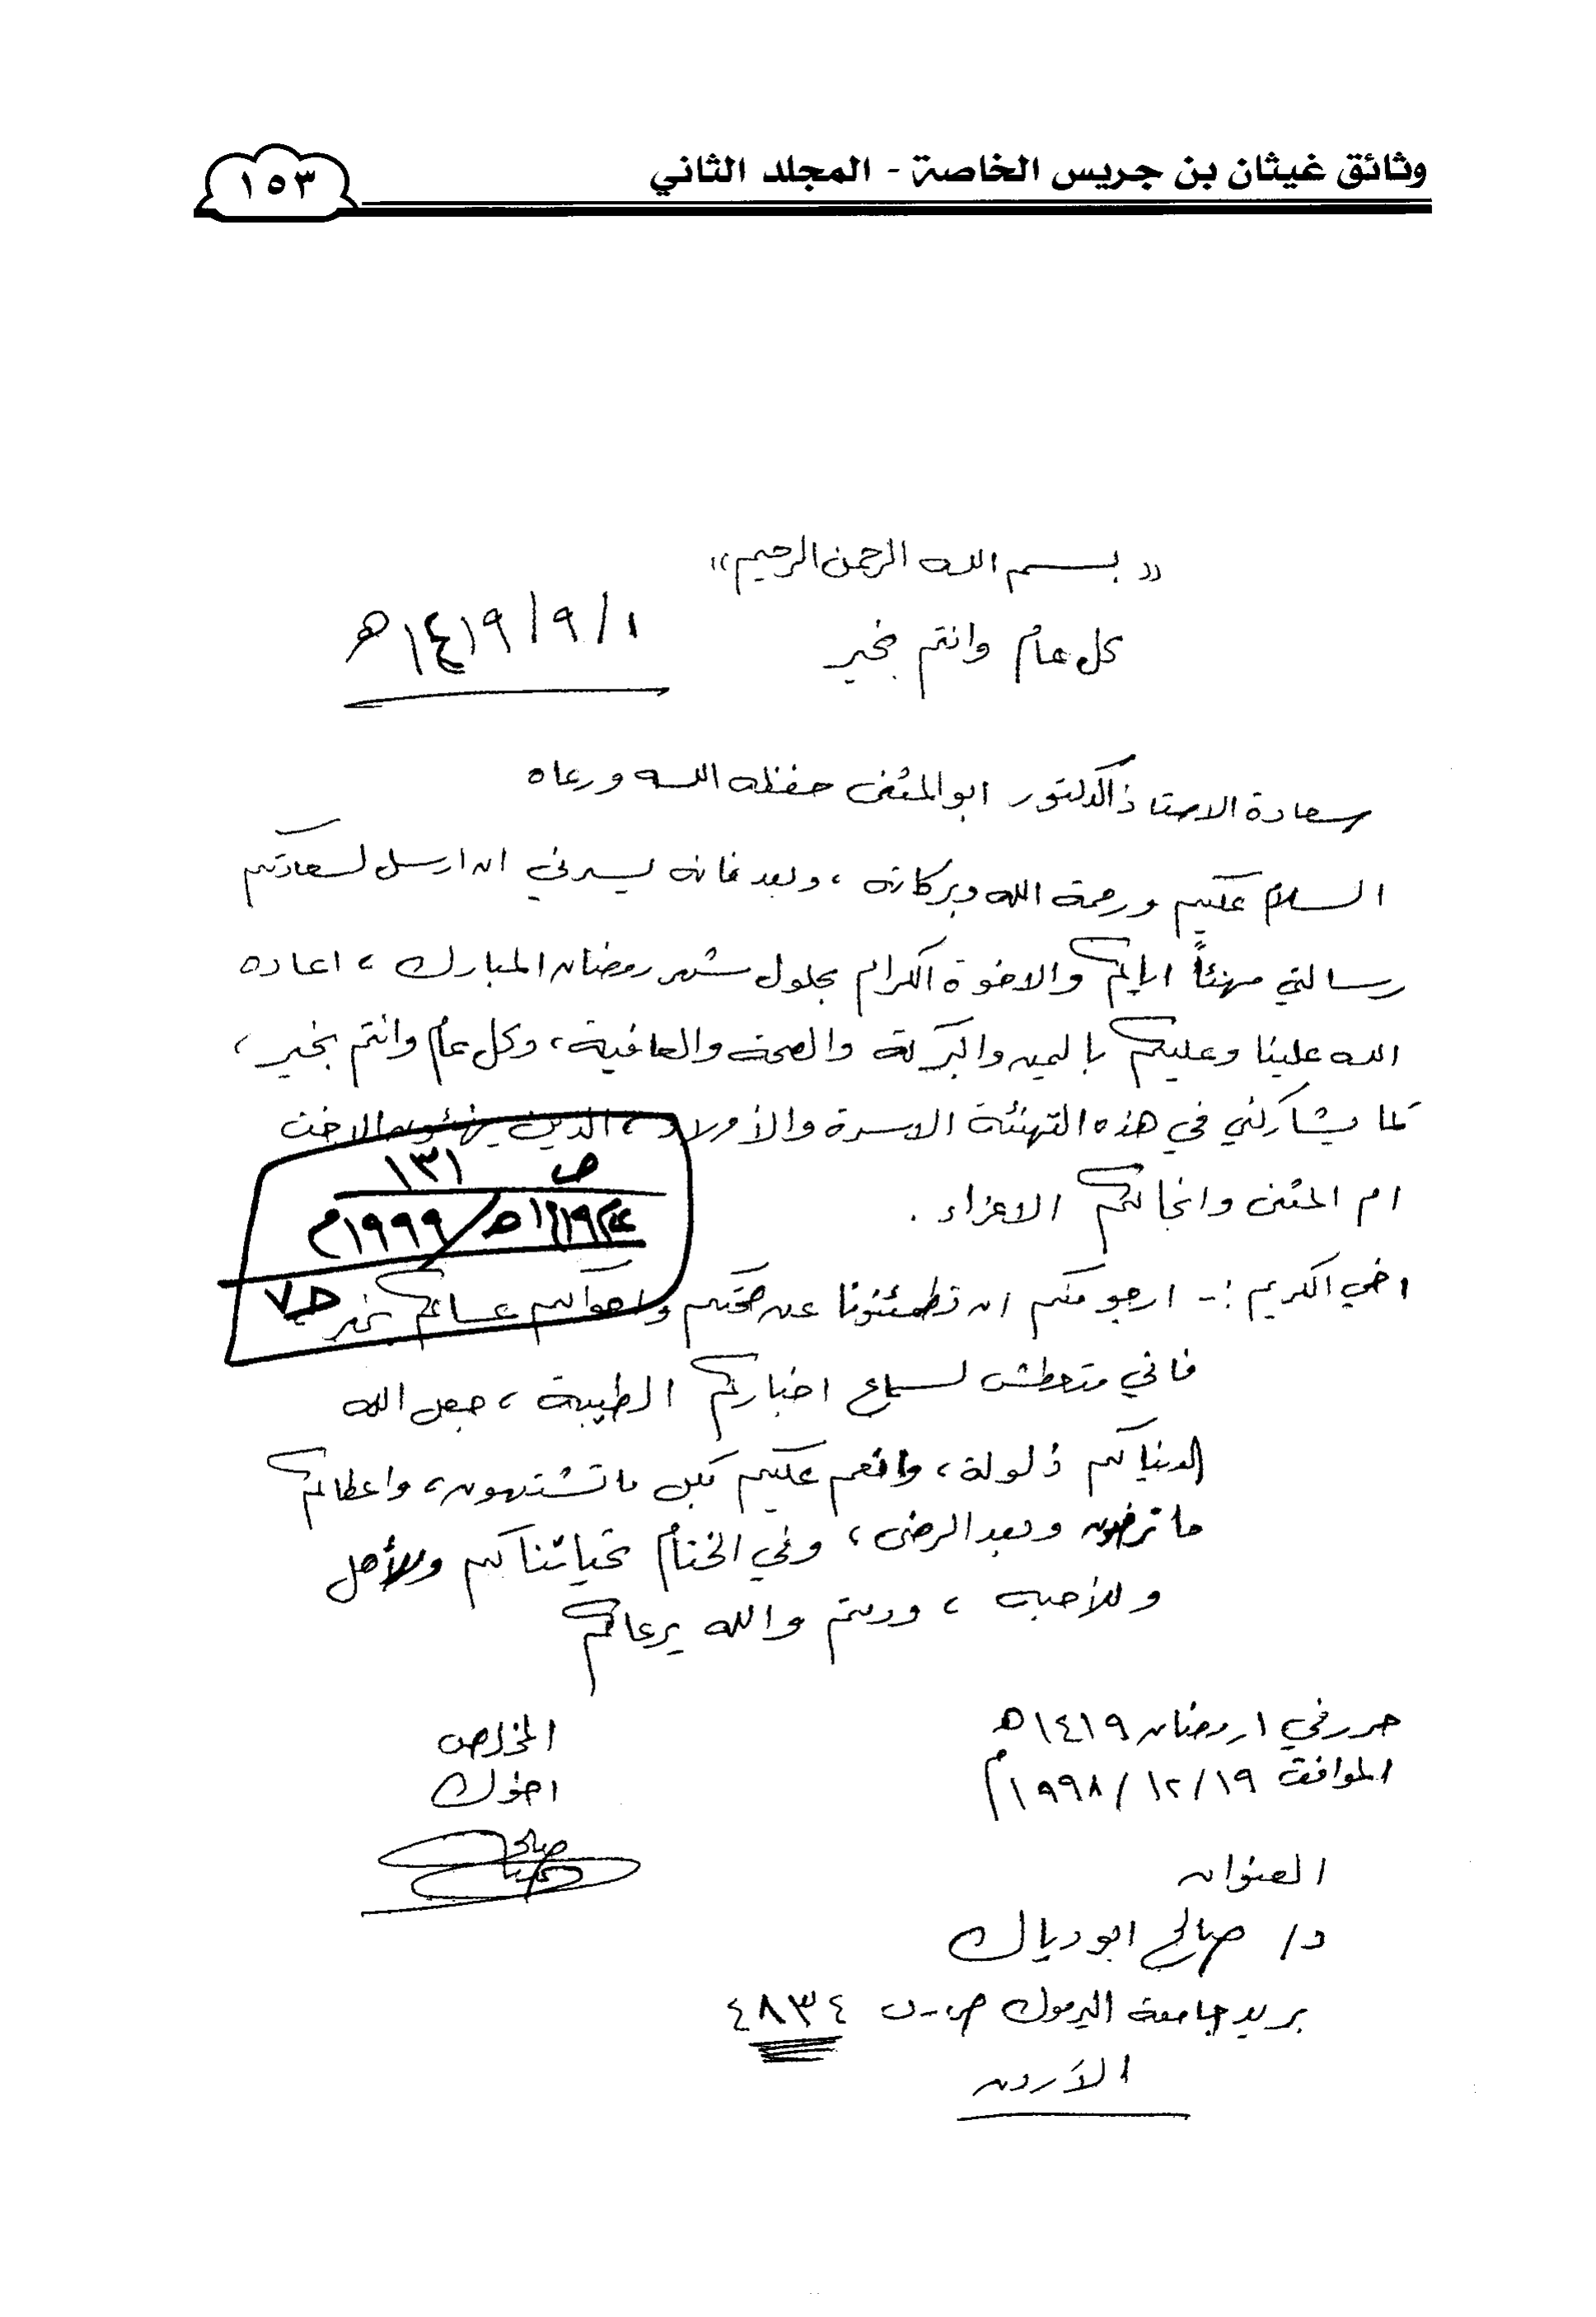 وثائق غيثان بن جريس الخاصة - المجلد الثاني
١٥٣
«بسم الله الرحمن الرحيم»
كل عام وانتم بخير
١/٩/١٤١٩هـ
سعادة الاستاذ الدكتور ابو المثنى حفظه الله ورعاه
السلام عليكم ورحمة الله وبركاته، وبعد فانه ليسرني ان ارسل لسعادتكم
رسالتي مهنئاً اياكم والاخوة الكرام بحلول شهر رمضان المبارك، اعاده
الله علينا وعليكم باليمن والبركة والصحة والعافية، وكل عام وانتم بخير،
كما يشاركني في هذه التهنئة الاسرة والأولاد، الذين يهنئون الاخت
ام المثنى وانجالكم الاعزاء.
ص ١٣١
١٤١٩هـ/١٩٩٩م
ح٧
اخي الكريم :- ارجو منكم ان تطمئنونا عن صحتكم واحوالكم عساكم بخير
فاني متعطش لسماع اخباركم الطيبة، جعل الله
الدنيا لكم ذلولة، وانعم عليكم بكل ما تشتهون، واعطاكم
ما ترضون وبعد الرضى، وفي الختام تحياتنا لكم وللأهل
وللأحبه، ودمتم والله يرعاكم
حرر في ١ رمضان ١٤١٩هـ
الموافق ١٩/١٢/١٩٩٨م
المخلص
اخوك
صالح
العنوان
د/ صالح ابو دياك
بريد جامعة اليرموك ص.ب ٤٨٣٤
الأردن